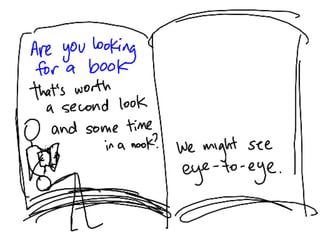 Are you looking
for a book
that's worth
a second look
and some time
in a nook?
We might see
eye-to-eye.